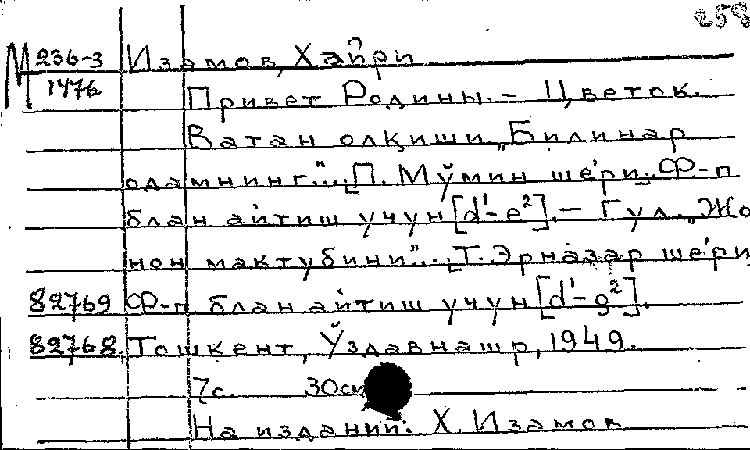 258
М 236-3 Изамов, Хайри
1476
Привет Родины. – Цветок.
Ватан олқиши „Билинар
одамнинг“... [П. Мўмин ше'ри]. Ф-п
блан айтиш учун [d'-e²]. – Гул. „Жо
нон мактубини“... [Т. Эрназар ше'ри
82769 Ф-п блан айтиш учун [d'-g²].
82768 Тошкент, Ўздавнашр, 1949.
7с. 30см
На издании: Х. Изамов